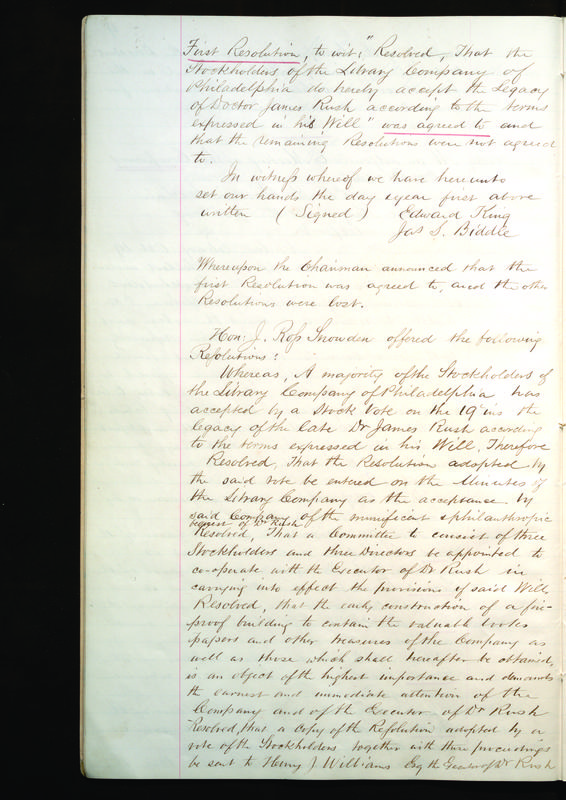 First Resolution, to wit; "Resolved, That the
Stockholders of the Library Company of
Philadelphia do hereby accept the Legacy
of Doctor James Rush according to the terms
expressed in his Will" was agreed to and
that the remaining Resolutions were not agreed
to.
In witness whereof we have hereunto
set our hands the day & year first above
written (Signed) Edward King
Jas S. Biddle
Whereupon the Chairman announced that the
first Resolution was agreed to, and the other
Resolutions were lost.
Hon. J. Ross Snowden offered the following
Resolutions:
Whereas, A majority of the Stockholders of
the Library Company of Philadelphia has
accepted by a Stock Vote on the 19th ins the
legacy of the late Dr James Rush according
to the terms expressed in his Will, Therefore
Resolved, That the Resolution adopted by
the said vote be entered on the Minutes of
the Library Company as the acceptance by
said Company of the munificent & philanthropic
bequest of Dr Rush
Resolved, That a Committee to consist of three
Stockholders and three Directors be appointed to
co-operate with the Executor of Dr Rush in
carrying into effect the provisions of said Will.
Resolved, that the early construction of a fire-
proof building to contain the valuable books
papers and other treasures of the Company as
well as those which shall hereafter be obtained,
is an object of the highest importance and demands
the earnest and immediate attention of the
Company and of the Executor of Dr Rush
Resolved, that a Copy of the Resolution adopted by a
vote of the Stockholders together with these proceedings
be sent to Henry J Williams Esq the Executor of Dr Rush